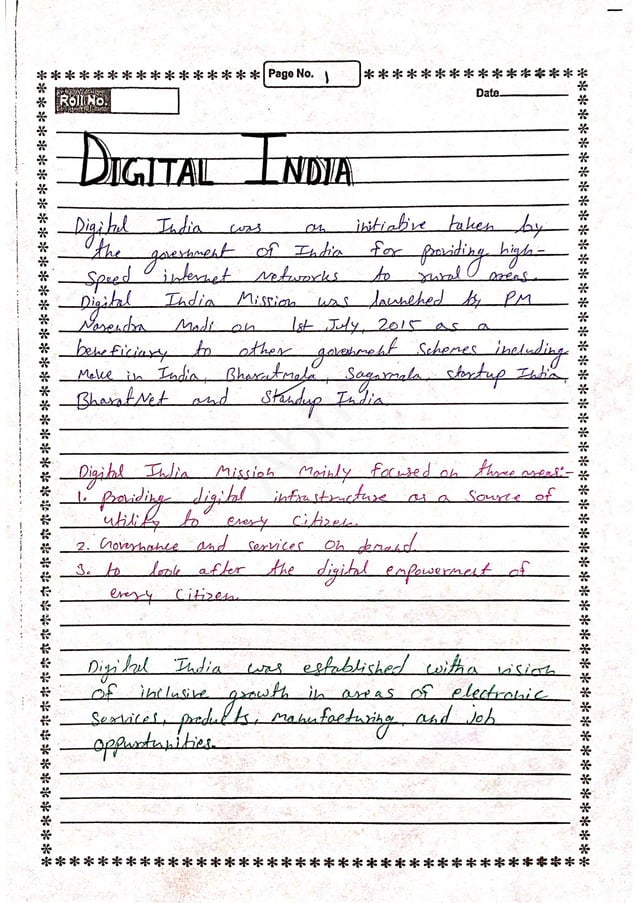 Page No. 1
Roll No.
Date
DIGITAL INDIA
Digital India was an initiative taken by
the government of India for providing high-
Speed internet Networks to rural areas.
Digital India Mission was launched by PM
Narendra Modi on 1st July, 2015 as a
beneficiary to other government Schemes including
Make in India, Bharatmala, Sagarmala, startup India,
BharatNet and Standup India.
Digital India Mission Mainly focused on three areas:-
1. Providing digital infrastructure as a Source of
utility to every Citizen.
2. Governance and services on demand.
3. to look after the digital empowerment of
every Citizen.
Digital India was established with a vision
of inclusive growth in areas of electronic
Services, products, manufacturing, and job
oppurtunities.